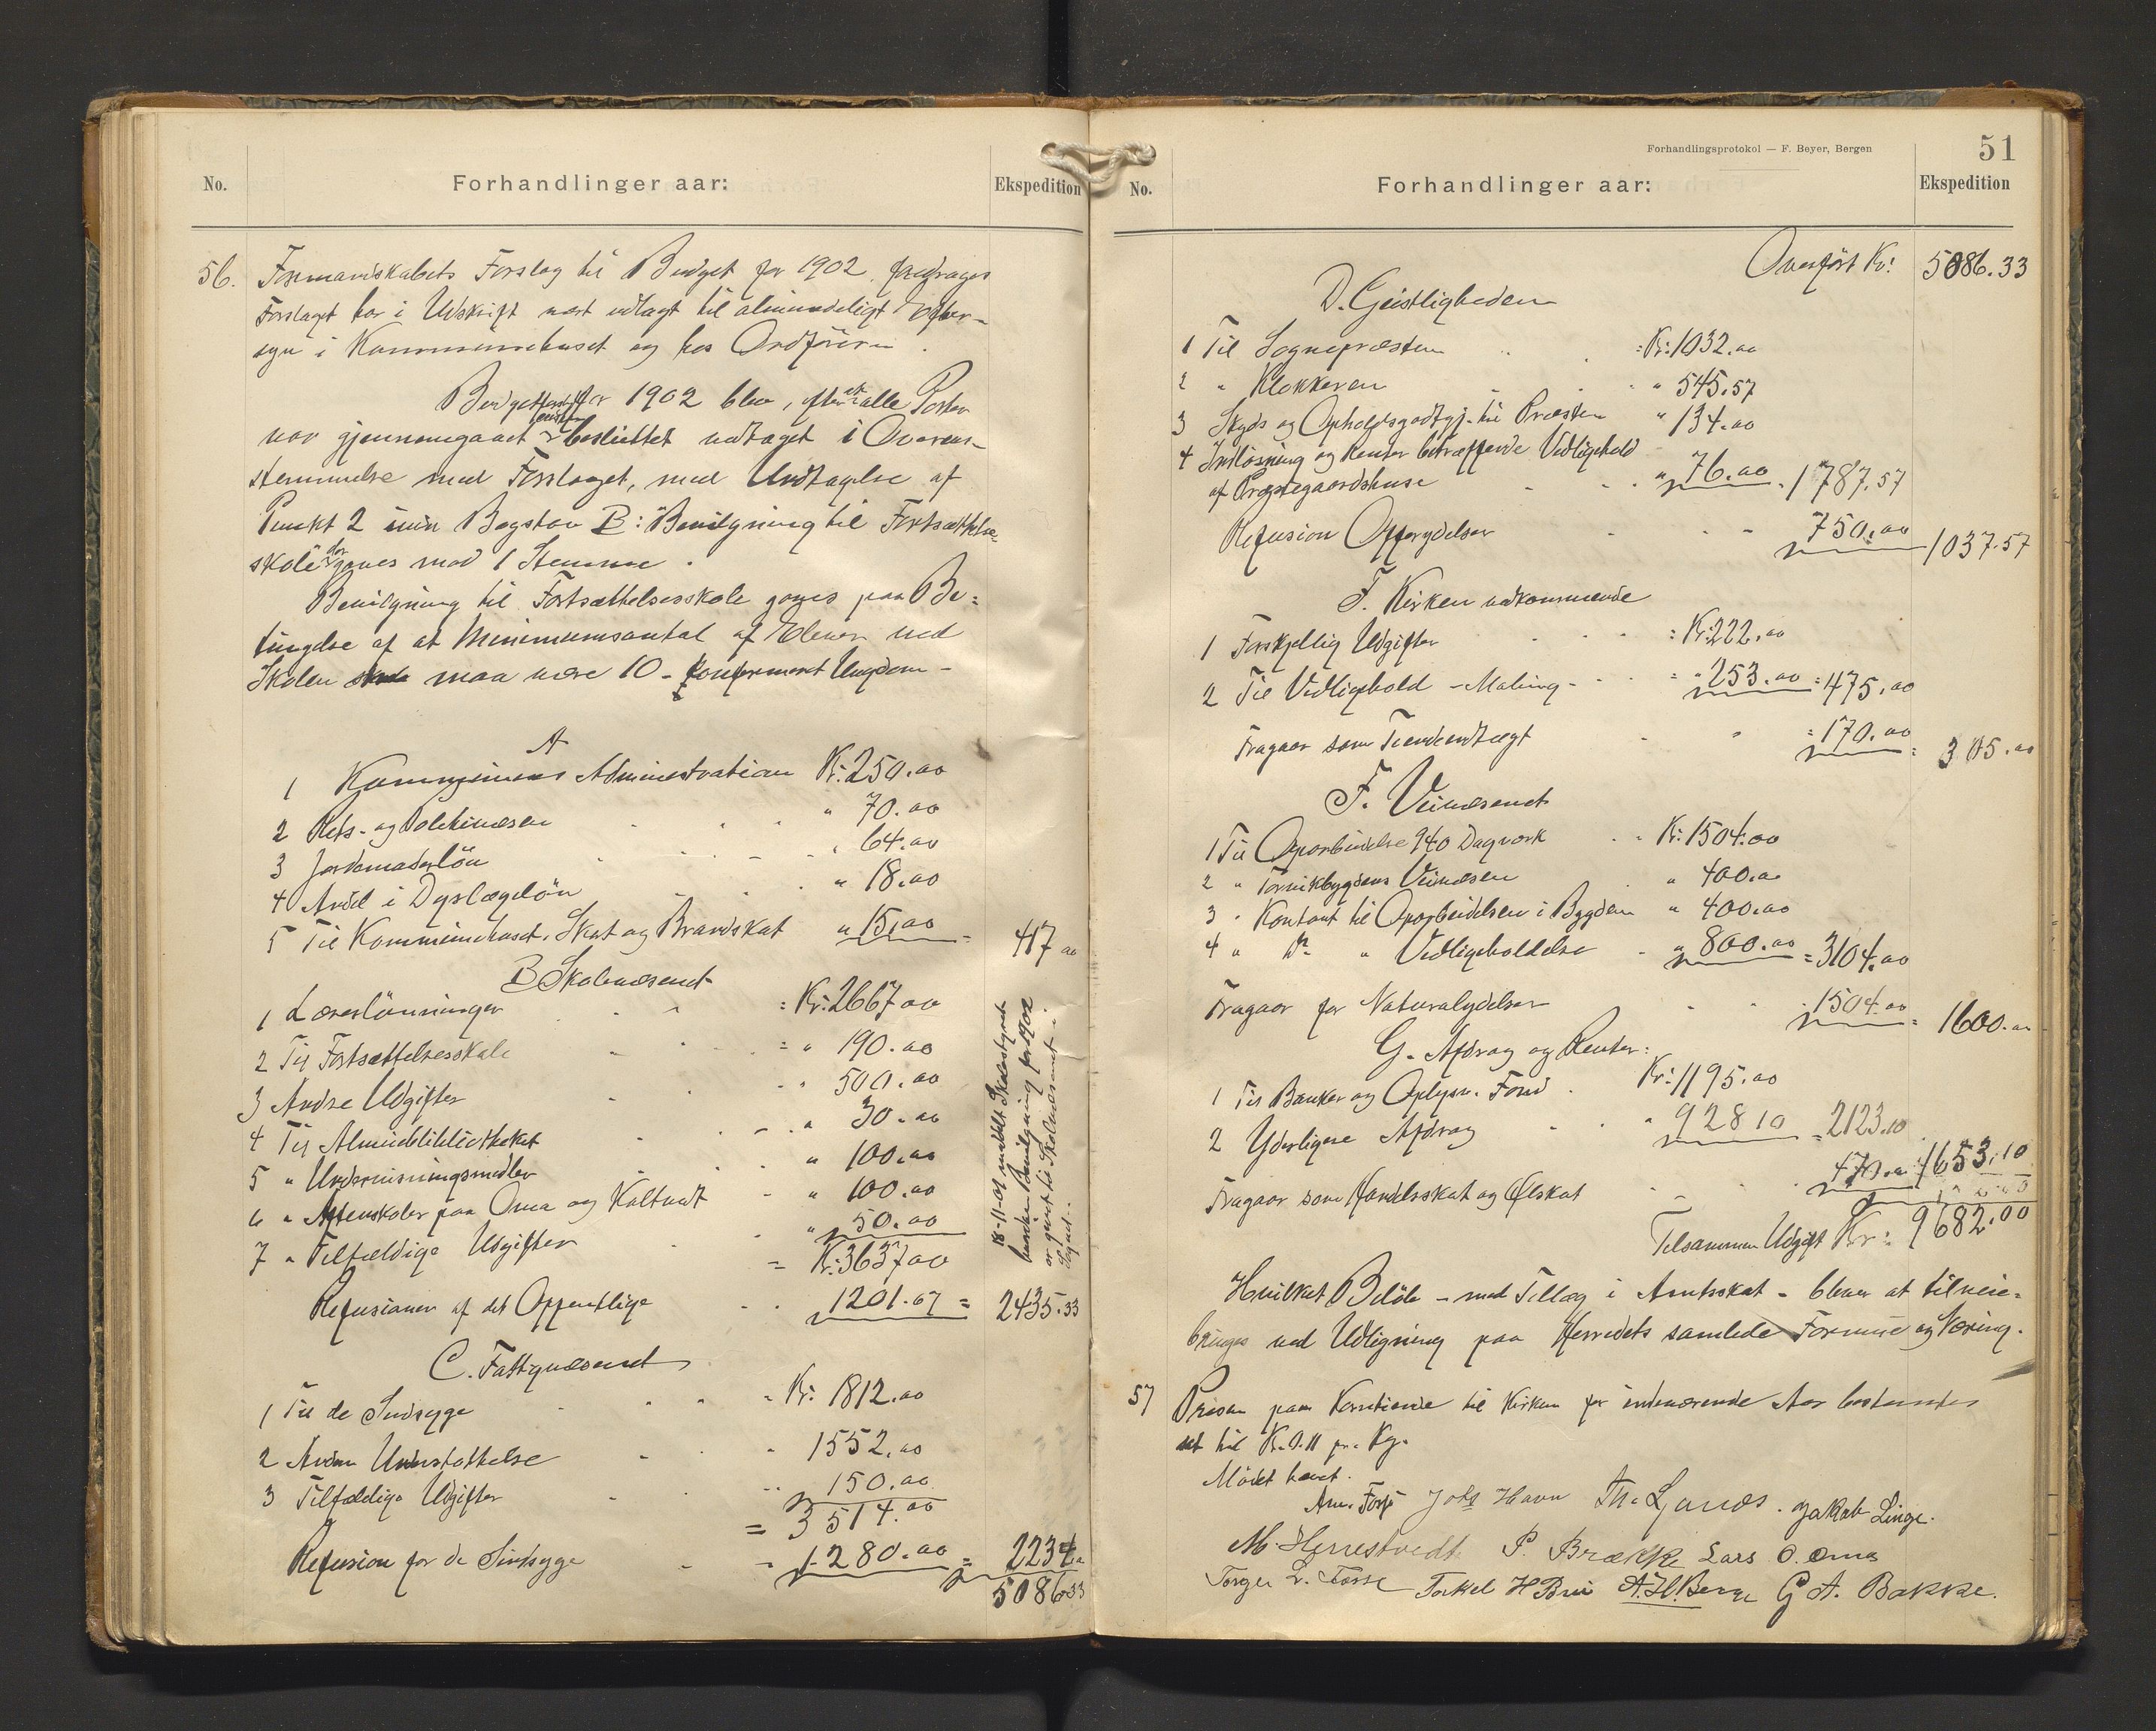 No.
Forhandlinger aar:
Ekspedition
56. Formandskabets Forslag til Budget for 1902 foredrages
Forslaget har i Udskrift vært udlagt til almindeligt Efter-
syn i Kommunehuset og hos Ordföreren.
Budgettet for 1902 blev, efter at alle Poster
var gjennemgaaet besluttet vedtaget i Overens-
stemmelse med Forslaget, med Undtagelse af
Punkt 2 Bogstav B: Bevilgning til Fortsættelses-
skole der gaves mod 1 Stemme.
Bevilgning til Fortsættelsesskole gaves paa Be-
tingelse af at Minimumsantal af Elever ved
Skolen maa være 10 - konfirmert Ungdom -
A
1 Kommunens Administration Kr: 250.00
2 Rets- og Politivæsen " 70.00
3 Jordemoderlön " 64.00
4 Andel i Dyrlægelön " 18.00
5 Til Kommunehuset, Skat og Brandskat " 15.00 = 417 00
B Skolevæsenet
1 Lærerlönninger = Kr: 2667 00
2 Til Fortsættelsesskole = " 190.00
3 Andre Udgifter " 500.00
4 Til Almuebibliotheket " 30.00
5 " Undervisningsmidler " 100.00
6 " Aftenskoler paa Oma og Kaltvedt " 100.00
7 " Tilfældige Udgifter " 50.00
= Kr: 3637 00
Refusioner af det Offentlige 1201.67 = 2435.33
18-11-01 meddelt Skolestyret
hvordan Bevilgning for 1902
er gjort til Skolevæsenet i
Sognet.
C. Fattigvæsenet
1 Til de Sindsyge Kr: 1812.00
2 Anden Understøttelse 1552.00
3 Tilfældige Udgifter 150.00
= 3514.00
Refusion for de Sindsyge 1280.00 = 2234.00
5086.33
Forhandlingsprotokol — F. Beyer, Bergen
51
No.
Forhandlinger aar:
Ekspedition
Overfört Kr: 5086.33
D. Geistligheden
1 Til Sognepræsten = Kr: 1032.00
2 " Klokkeren " 545.57
3 Skyds og Opholdsgodtgj. til Præsten " 134.00
4 Indlösning og Renter beträffende Vedligehold
af Præstegaardshuse " 76.00 = 1787.57
Refusion Offerydelser 750.00 1037.57
F. Kirken vedkommende
1 Forskjellig Udgifter = Kr: 222.00
2 Til Vedligehold - Maling - = " 253.00 = 475.00
Fragaar som Tiendeindtægt = 170.00 = 305.00
F. Veivæsenet
1 Til Oparbeidelse 940 Dagværk Kr: 1504.00
2 " Tørvikbygdens Veivæsen " 400.00
3 " Kontant til Oparbeidelsen i Bygden " 400.00
4 " Do " Vedligeholdelse " 800.00 = 3104.00
Fragaar for Naturalydelser 1504.00 = 1600.00
G. Afdrag og Renter:
1 Til Banker og Oplysn. Fond Kr: 1195.00
2 Yderligere Afdrag " 928 10 = 2123.10
Fragaar som Handelsskat og Ølskat 470.00 1653.10
Tilsammen Udgift Kr: 9682.00
Hvilket Belöb - med Tillæg i Amtsskat - bliver at tilveie-
bringes ved Udligning paa Herredets samlede Formue og Næring.
57 Prisen paa Korntiende til Kirken for indeværende Aar bestemtes
sat til Kr. 0.11 pr. Kg.
Mödet hævet.
Am. Fosse Johs Havn Th. Ljones. Jakob Linge.
M. Herrestvedt P. Brække Lars O. Oma
Torger L. Fosse Torkel H Bru A. H. Berge G A. Bakke.